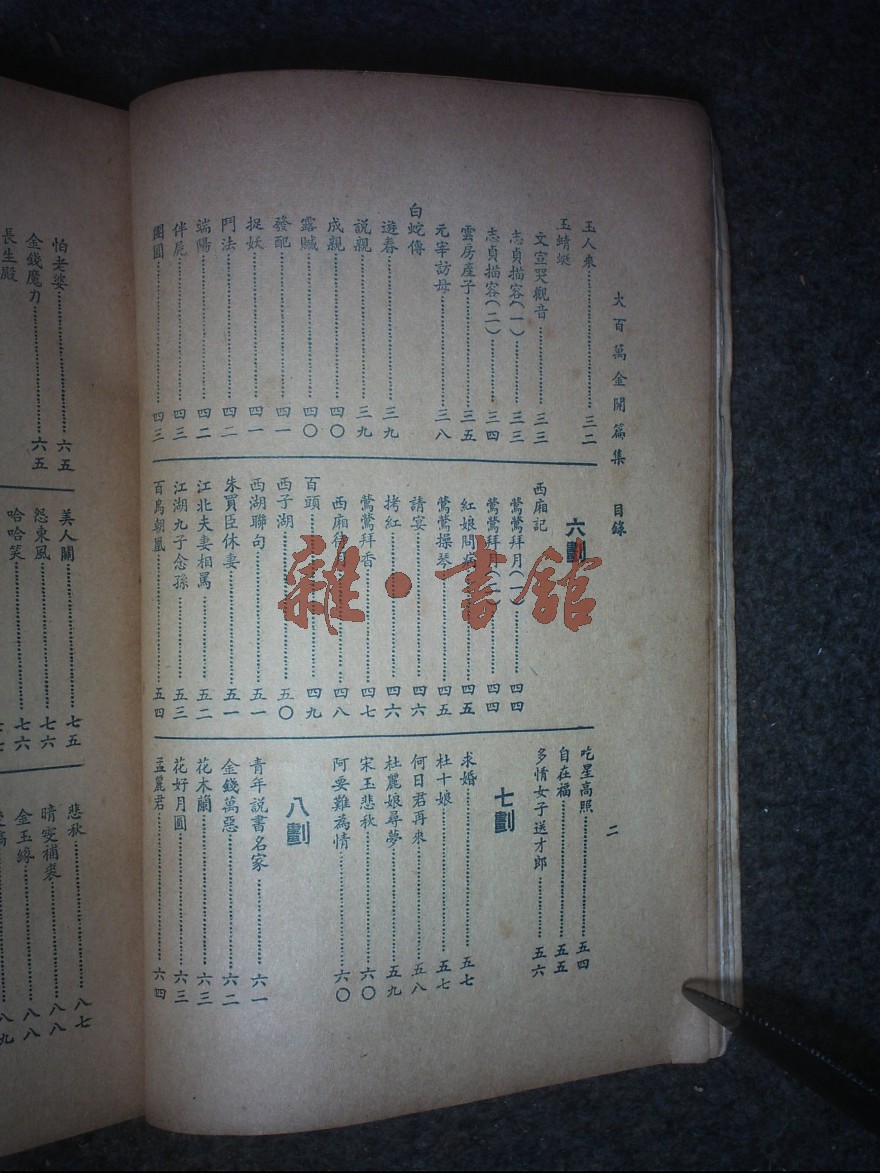 大百萬金開篇集 目錄 二
玉人來 三二
玉蜻蜓
文宣哭觀音 三三
志貞描容(一) 三三
志貞描容(二) 三四
雲房產子 三五
元宰訪母 三八
白蛇傳
遊春 三九
說親 三九
成親 四〇
露贓 四〇
發配 四一
捉妖 四一
鬥法 四二
端陽 四二
伴屍 四三
團圓 四三
六劃
西廂記
鶯鶯拜月(一) 四四
鶯鶯拜月(二) 四四
紅娘問病 四五
鶯鶯操琴 四五
請宴 四六
拷紅 四六
鶯鶯拜香 四七
西廂待月 四八
百頭 四九
西子湖 五〇
西湖聯句 五一
朱買臣休妻 五一
江北夫妻相罵 五二
江湖九子念孫 五三
百鳥朝鳳 五四
吃星高照 五四
自在福 五五
多情女子送才郎 五六
七劃
求婚 五七
杜十娘 五七
何日君再來 五八
杜麗娘尋夢 五九
宋玉悲秋 六〇
阿要難為情 六〇
八劃
青年說書名家 六一
金錢萬惡 六二
花木蘭 六三
花好月圓 六三
孟麗君 六四
怕老婆 六五
金錢魔力 六五
長生殿
美人關 七五
怨東風 七六
哈哈笑 七六
悲秋 八七
晴雯補裘 八八
金玉緣 八八
八九
雜·書館